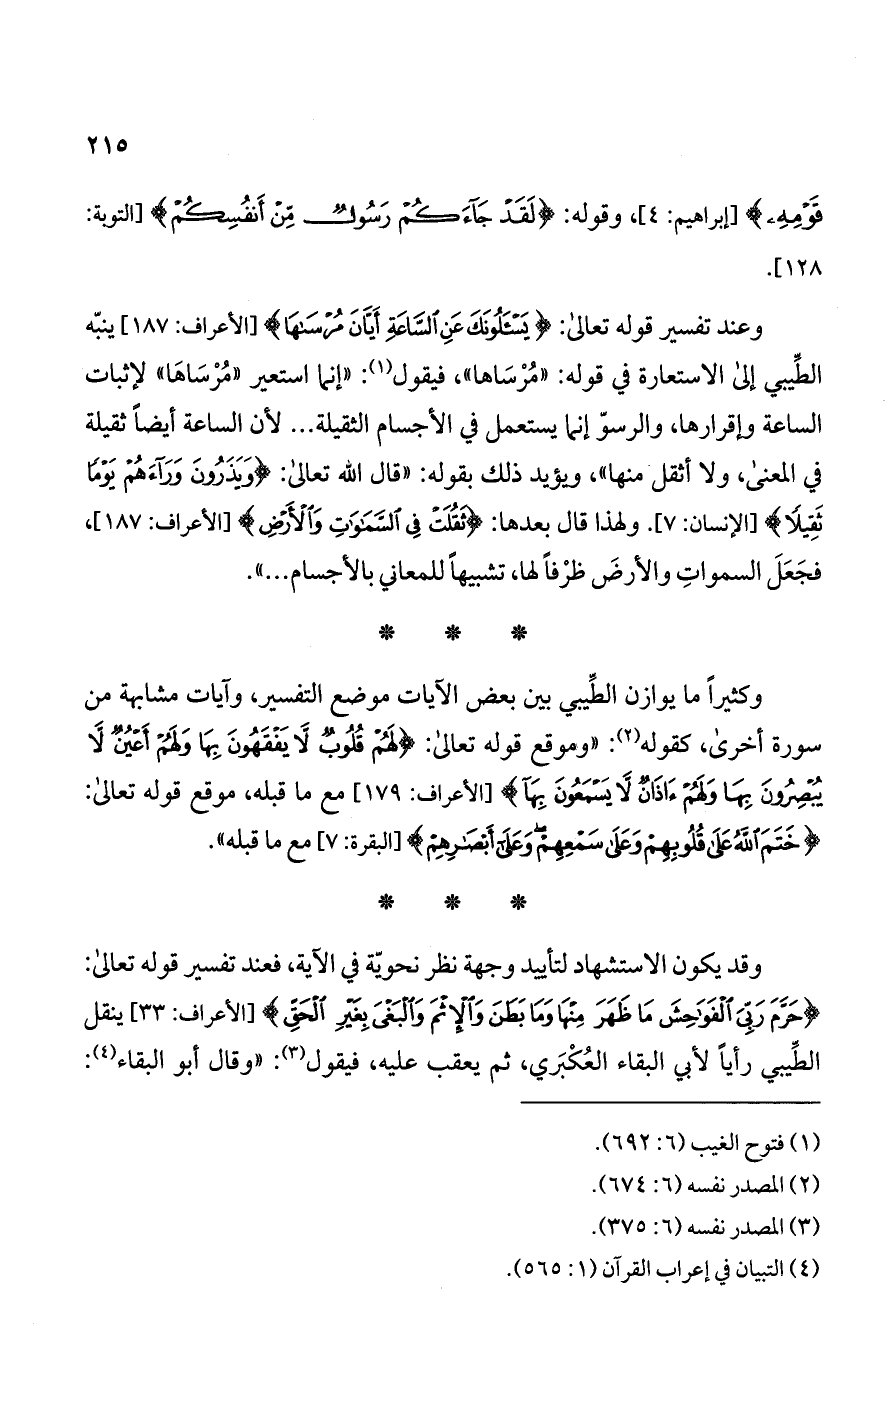 ٢١٥
قَوْمِهِۦ﴾ [إبراهيم: ٤]، وقوله: ﴿لَقَدْ جَآءَكُمْ رَسُولٌ مِّنْ أَنفُسِكُمْ﴾ [التوبة:
١٢٨].
وعند تفسير قوله تعالىٰ: ﴿يَسْـَٔلُونَكَ عَنِ ٱلسَّاعَةِ أَيَّانَ مُرْسَىٰهَا﴾ [الأعراف: ١٨٧] ينبّه
الطِّيبي إلىٰ الاستعارة في قوله: «مُرْسَاها»، فيقول(١): «إنما استعير «مُرْسَاهَا» لإثبات
الساعة وإقرارها، والرسوّ إنما يستعمل في الأجسام الثقيلة... لأن الساعة أيضاً ثقيلة
في المعنىٰ، ولا أثقل منها»، ويؤيد ذلك بقوله: «قال الله تعالىٰ: ﴿وَيَذَرُونَ وَرَآءَهُمْ يَوْمًا
ثَقِيلًا﴾ [الإنسان: ٧]. ولهذا قال بعدها: ﴿ثَقُلَتْ فِى ٱلسَّمَٰوَٰتِ وَٱلْأَرْضِ﴾ [الأعراف: ١٨٧]،
فجَعَلَ السمواتِ والأرضَ ظرْفاً لها، تشبيهاً للمعاني بالأجسام...».
* * *
وكثيراً ما يوازن الطِّيبي بين بعض الآيات موضع التفسير، وآيات مشابهة من
سورة أخرىٰ، كقوله(٢): «وموقع قوله تعالىٰ: ﴿لَهُمْ قُلُوبٌ لَّا يَفْقَهُونَ بِهَا وَلَهُمْ أَعْيُنٌ لَّا
يُبْصِرُونَ بِهَا وَلَهُمْ ءَاذَانٌ لَّا يَسْمَعُونَ بِهَآ﴾ [الأعراف: ١٧٩] مع ما قبله، موقع قوله تعالىٰ:
﴿خَتَمَ ٱللَّهُ عَلَىٰ قُلُوبِهِمْ وَعَلَىٰ سَمْعِهِمْ ۖ وَعَلَىٰٓ أَبْصَٰرِهِمْ﴾ [البقرة: ٧] مع ما قبله».
* * *
وقد يكون الاستشهاد لتأييد وجهة نظر نحويّة في الآية، فعند تفسير قوله تعالىٰ:
﴿حَرَّمَ رَبِّىَ ٱلْفَوَٰحِشَ مَا ظَهَرَ مِنْهَا وَمَا بَطَنَ وَٱلْإِثْمَ وَٱلْبَغْىَ بِغَيْرِ ٱلْحَقِّ﴾ [الأعراف: ٣٣] ينقل
الطِّيبي رأياً لأبي البقاء العُكْبَري، ثم يعقب عليه، فيقول(٣): «وقال أبو البقاء(٤):
(١) فتوح الغيب (٦: ٦٩٢).
(٢) المصدر نفسه (٦: ٦٧٤).
(٣) المصدر نفسه (٦: ٣٧٥).
(٤) التبيان في إعراب القرآن (١: ٥٦٥).